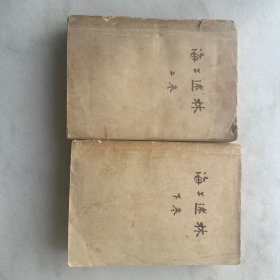 海上述林
上卷
海上述林
下卷